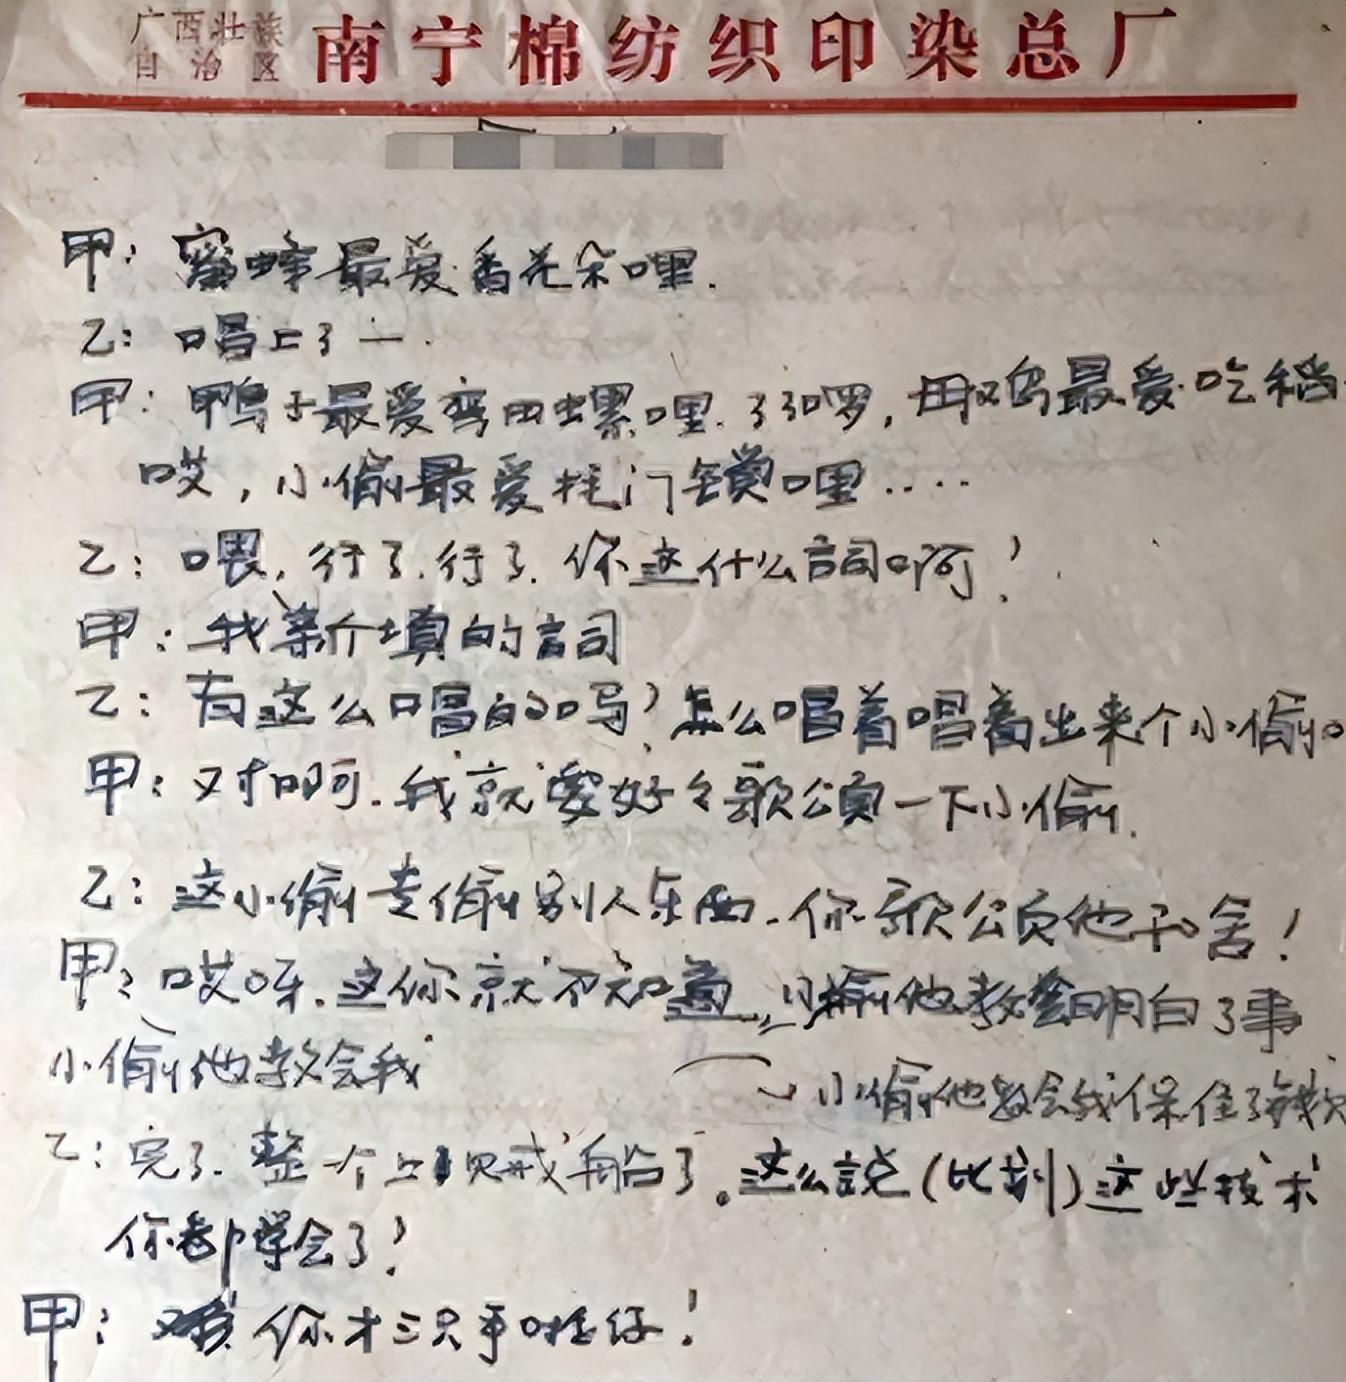 广西壮族自治区 南宁棉纺织印染总厂
甲：蜜蜂最爱香花朵哩.
乙：唱上了一.
甲：鸭子最爱弯田螺哩.了了啰,毋鸡最爱吃稻
哎,小偷最爱撬门锁哩....
乙：喂,行了.行了.你这什么词啊！
甲：我新填的词
乙：有这么唱的吗?怎么唱着唱着出来个小偷。
甲：对啊.我就要好好歌颂一下小偷.
乙：这小偷专偷别人东西.你歌颂他不舍！
甲：哎呀.这你就不知道,小偷他教会明白了事
小偷他教会我
小偷他教会我保住了钱
乙：完了.整个上贼船了。这么说(比划)这些技术
你都学会了?
甲：你才三只手